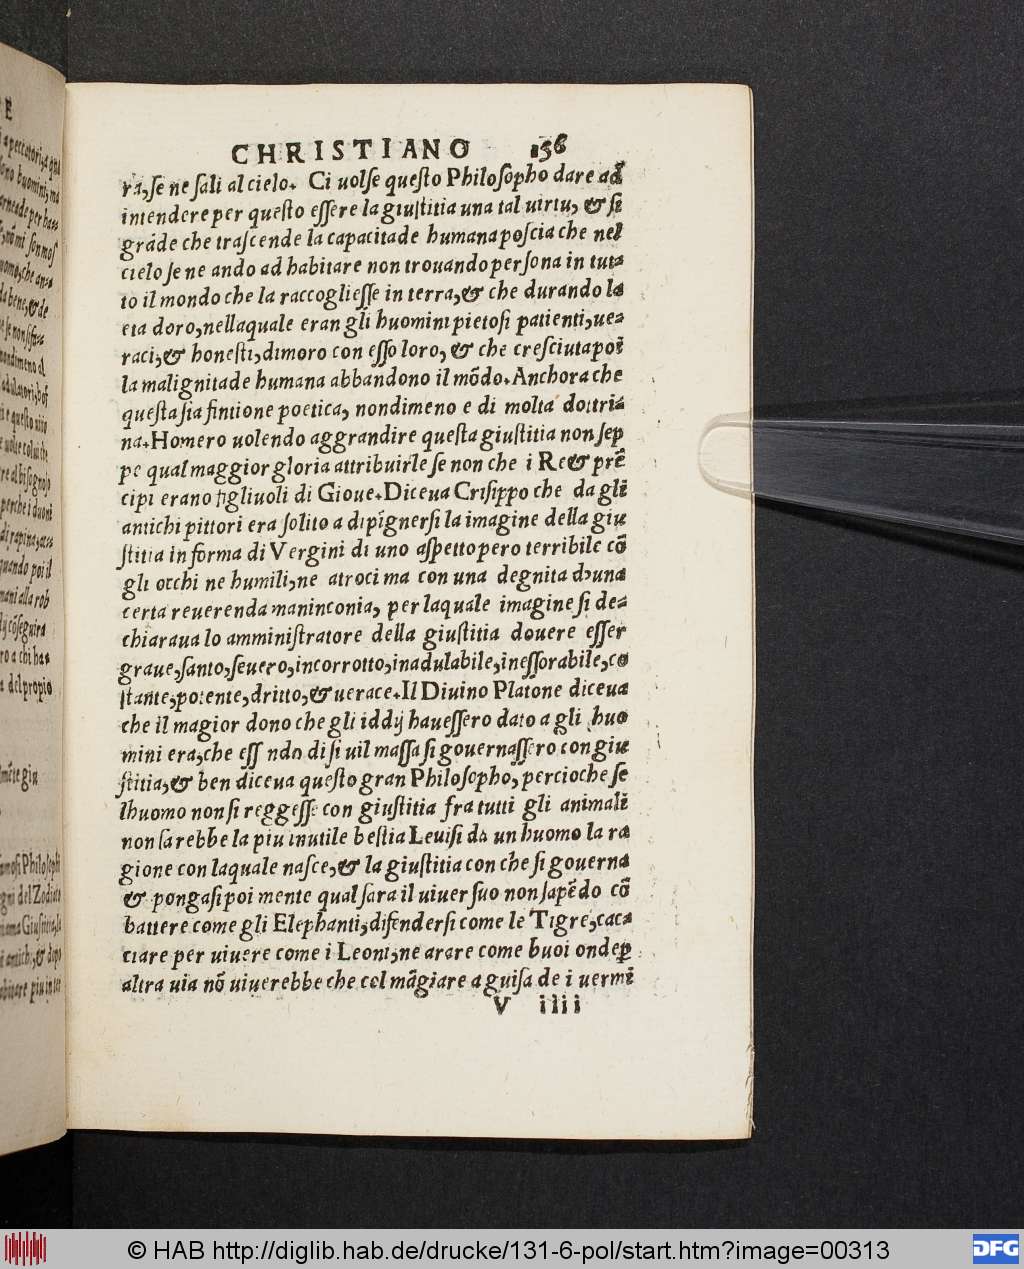 CHRISTIANO 156
ra, se ne sali al cielo. Ci uolse questo Philosopho dare ad
intendere per questo essere la giustitia una tal uirtu, & si
grāde che trascende la capacitade humana poscia che nel
cielo se ne ando ad habitare non trouando persona in tut=
to il mondo che la raccogliesse in terra, & che durando la
eta doro, nellaquale eran gli huomini pietosi patienti, ue=
raci, & honesti, dimoro con esso loro, & che cresciuta poi
la malignitade humana abbandono il mōdo. Anchora che
questa sia fintione poetica, nondimeno e di molta dottri=
na. Homero uolendo aggrandire questa giustitia non sep
pe qual maggior gloria attribuirle se non che i Re & prē
cipi erano figliuoli di Gioue. Diceua Crisippo che da gli
antichi pittori era solito a dipignersi la imagine della giu
stitia in forma di Vergini di uno aspetto pero terribile cō
gli occhi ne humili, ne atroci ma con una degnita duna
certa reuerenda maninconia, per laquale imagine si de=
chiaraua lo amministratore della giustitia douere esser
graue, santo, seuero, incorrotto, inadulabile, inessorabile, co
stante, potente, dritto, & uerace. Il Diuino Platone diceua
che il magior dono che gli iddij hauessero dato a gli huo
mini era, che ess ndo di si uil massa si gouernassero con giu
stitia, & ben diceua questo gran Philosopho, percioche se
lhuomo non si reggesse con giustitia fra tutti gli animali
non sarebbe la piu inutile bestia Leuisi da un huomo la ra
gione con laquale nasce, & la giustitia con che si gouerna
& pongasi poi mente qual sara il uiuer suo non sapēdo cō
battere come gli Elephanti, difendersi come le Tigre, cac=
ciare per uiuere come i Leoni, ne arare come buoi onde ꝑ
altra uia nō uiuerebbe che col māgiare a guisa de i uermi
V iiii
© HAB http://diglib.hab.de/drucke/131-6-pol/start.htm?image=00313
DFG